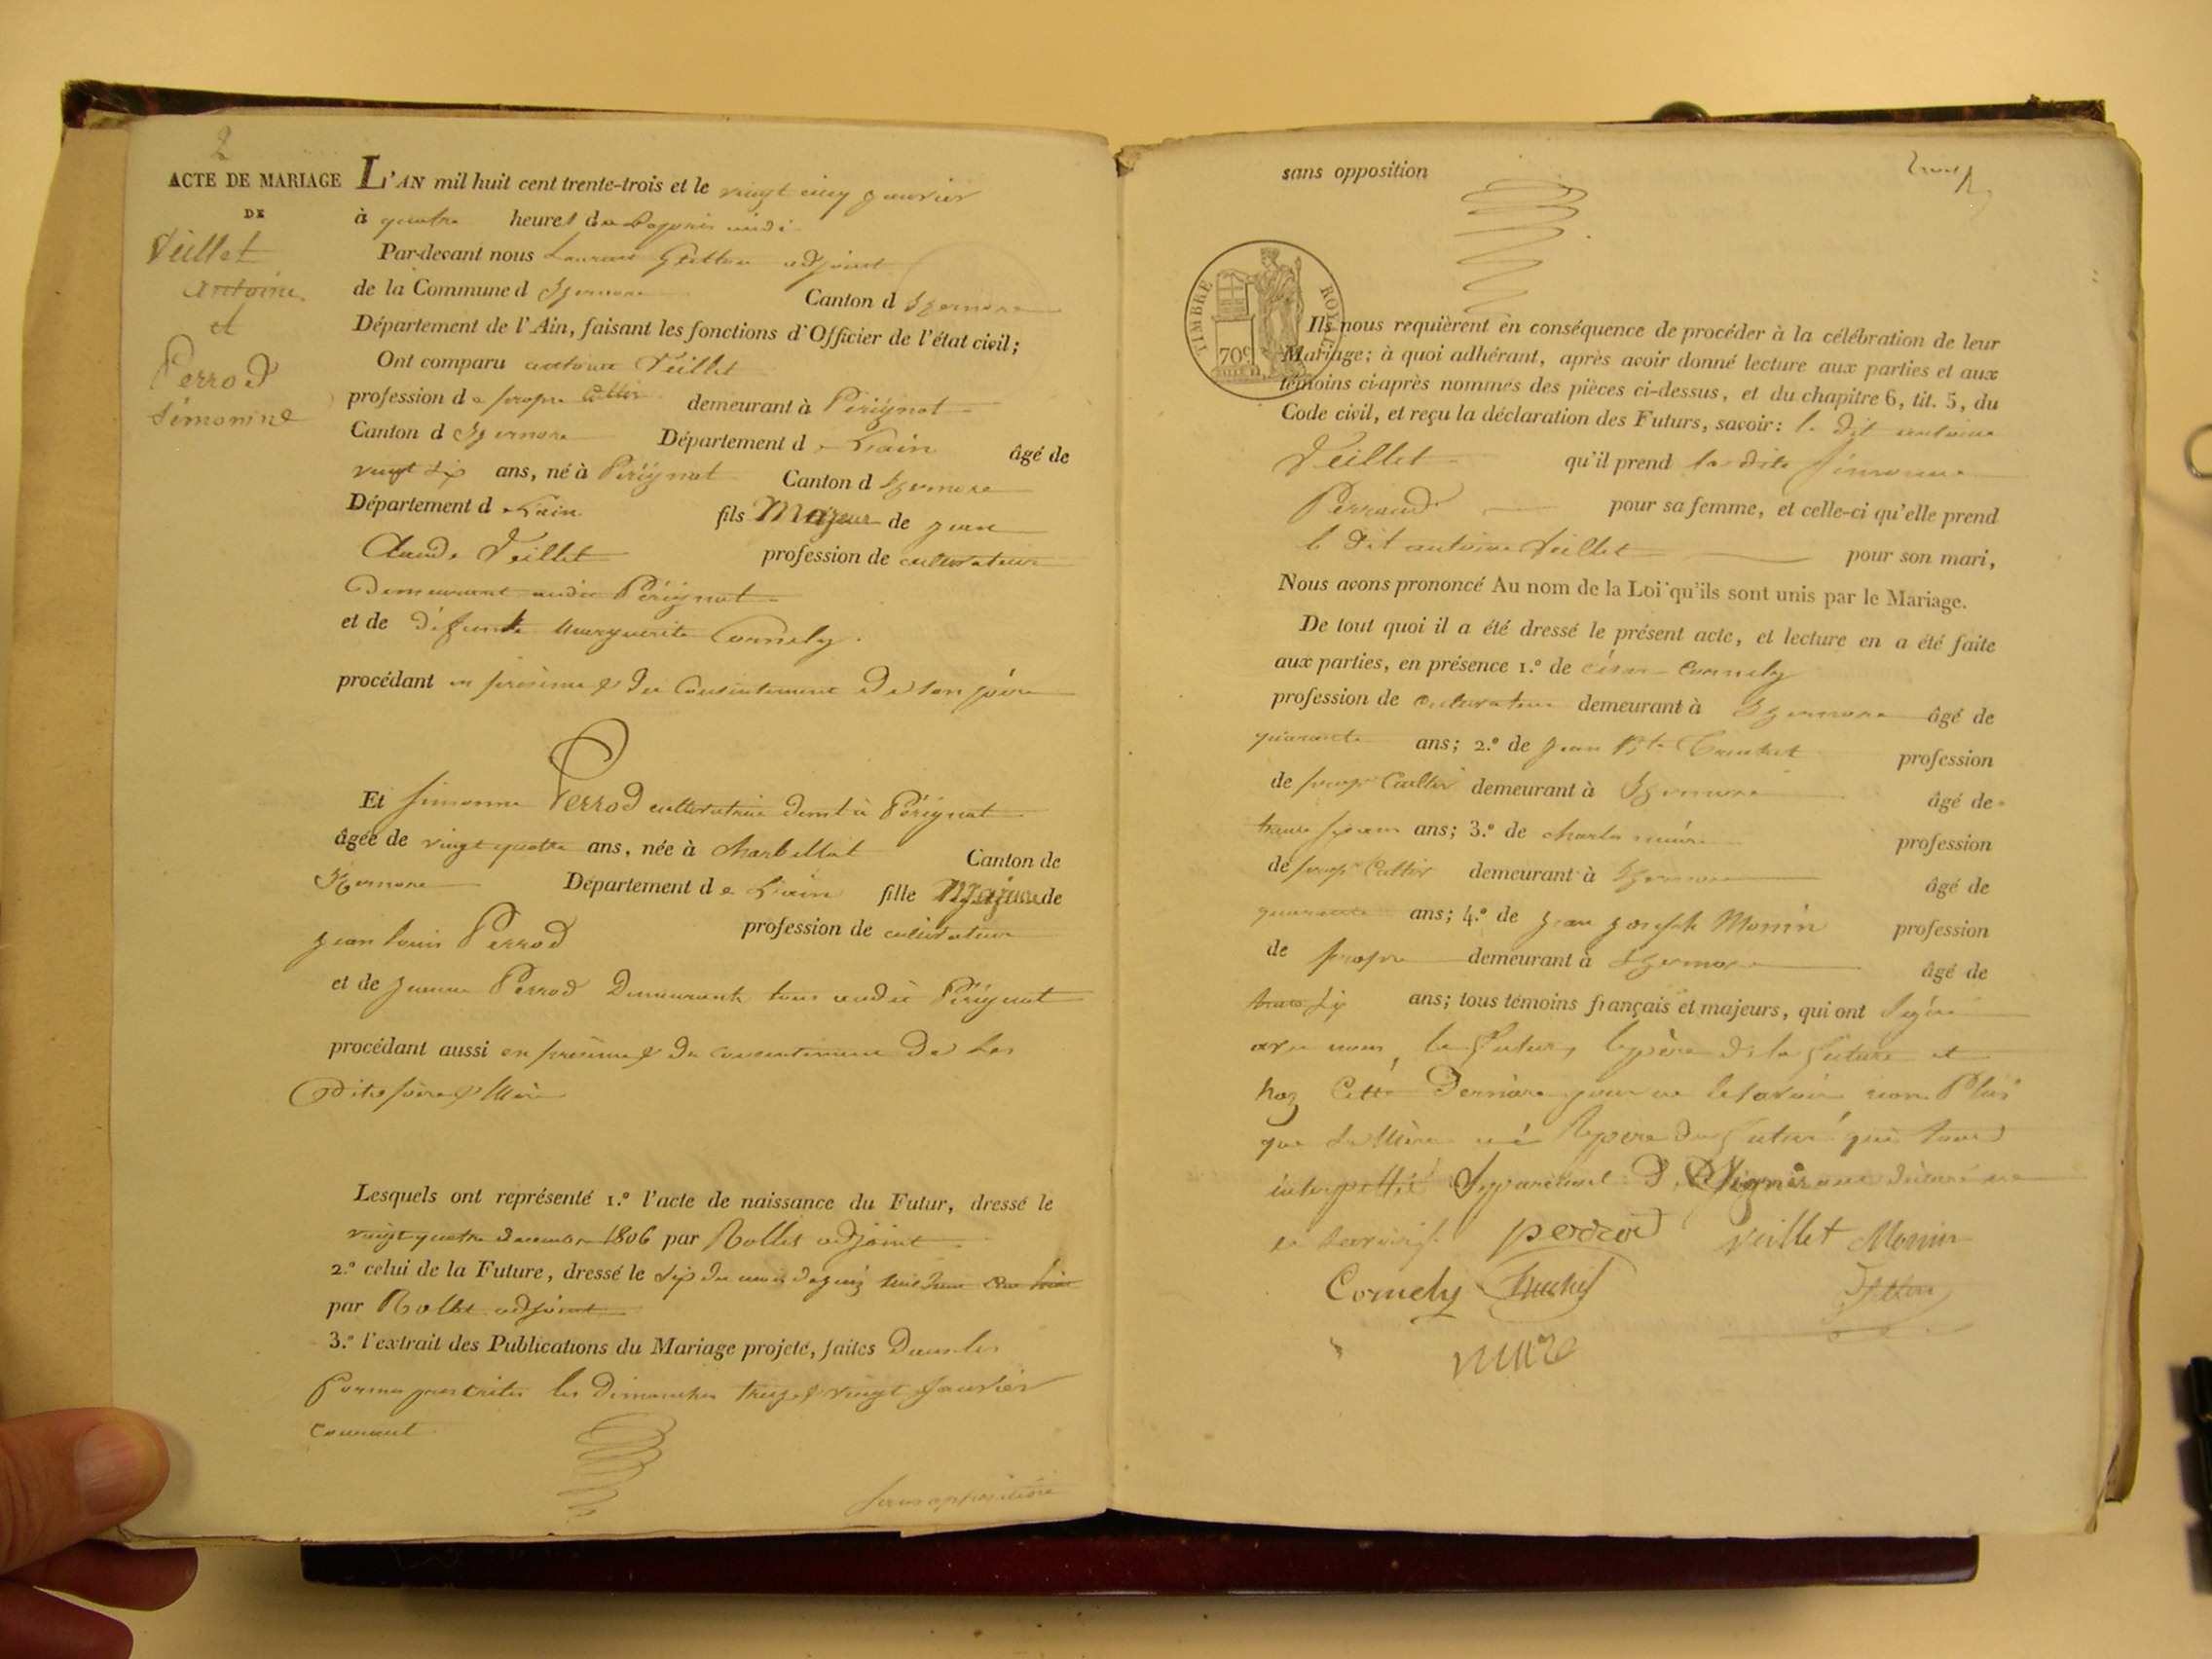 2
ACTE DE MARIAGE
DE
Veillet
Antoine
et
Perrod
Simonine
L'AN mil huit cent trente-trois et le vingt cinq janvier
à quatre heures du Laprès midi
Par-devant nous Laurent Grillon adjoint
de la Commune d Izernore Canton d Izernore
Département de l'Ain, faisant les fonctions d'Officier de l'état civil;
Ont comparu antoine Veillet
profession de propre demeurant à Pérignat
Canton d Izernore Département de Lain âgé de
vingt six ans, né à Pérignat Canton d Izernore
Département de Lain fils Majeur de jean
Claude Veillet profession de cultivateur
Demeurant audit Pérignat
et de défunte Marguerite Cornely
procédant en présence & du Consentement de son père
Et Simonne Perrod cultivatrice demt à Pérignat
âgée de vingt quatre ans, née à charbillat Canton de
Izernore Département de Lain fille Majeure de
jean louis Perrod profession de cultivateur
et de jeanne Perrod Demeurants tous audit Pérignat
procédant aussi en présence & du consentement de ses
Dits père & Mère
Lesquels ont représenté 1.º l'acte de naissance du Futur, dressé le
vingt quatre décembre 1806 par Rollet adjoint
2.º celui de la Future, dressé le six du mois de juin mil huit cent huit
par Rollet adjoint
3.º l'extrait des Publications du Mariage projeté, faites Dans les
formes prescrites les Dimanches treize & vingt janvier
courant
sans opposition
sans opposition
TIMBRE ROYAL
70c
Ils nous requièrent en conséquence de procéder à la célébration de leur
Mariage; à quoi adhérant, après avoir donné lecture aux parties et aux
témoins ci-après nommés des pièces ci-dessus, et du chapitre 6, tit. 5, du
Code civil, et reçu la déclaration des Futurs, savoir: le dit antoine
Veillet qu'il prend la dite Simonne
Perraud pour sa femme, et celle-ci qu'elle prend
le dit antoine Veillet pour son mari,
Nous avons prononcé Au nom de la Loi qu'ils sont unis par le Mariage.
De tout quoi il a été dressé le présent acte, et lecture en a été faite
aux parties, en présence 1.º de Cornely
profession de cultivateur demeurant à Izernore âgé de
quarante ans; 2.º de jean Bte Truchet profession
de demeurant à Izernore âgé de
trente ans; 3.º de charles profession
de demeurant à Izernore âgé de
quarante ans; 4.º de jean joseph Monin profession
de propre demeurant à Izernore âgé de
trente six ans; tous témoins français et majeurs, qui ont signé
avec nous, le futur, le père de la future et
non Cette Dernière pour ne le savoir non Plus
que sa Mère ni le père du futur qui tous
interpellé séparément de Signer ont déclaré ne
le savoir.
perrod veillet Monin
Cornely Truchet